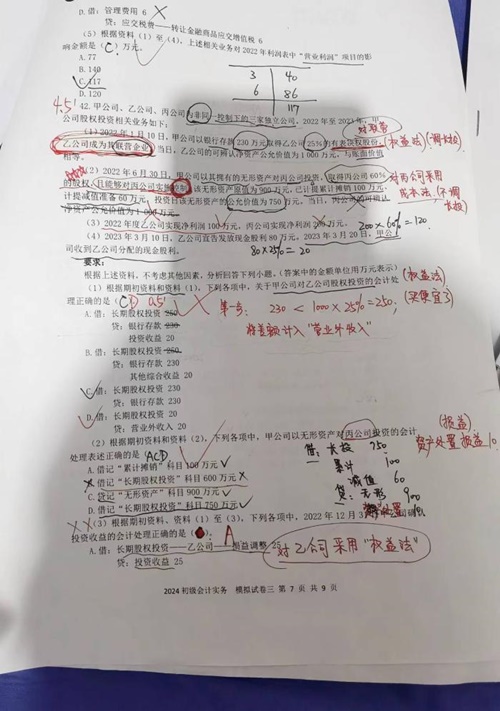 D.借：管理费用 6
贷：应交税费——转让金融商品应交增值税 6
（5）根据资料（1）至（4），上述相关业务对2022年利润表中“营业利润”项目的影
响金额是（C）万元。
A.77
B.140
C.117
D.120
3 40
6 86
117
4.5'
42.甲公司、乙公司、丙公司为非同一控制下的三家独立公司。2022年至2023年，甲
公司股权投资相关业务如下：
（1）2022年1月10日，甲公司以银行存款230万元取得乙公司25%的有表决权股份，
乙公司成为其联营企业。当日，乙公司的可辨认净资产公允价值为1 000万元，与账面价值
相等。
（2）2022年6月30日，甲公司以其拥有的无形资产对丙公司投资，取得丙公司60%
的股权，且能够对丙公司实施控制，该无形资产原值为900万元，已计提累计摊销100万元，
计提减值准备60万元，投资日该无形资产的公允价值为750万元，当日，丙公司的可辨认
净资产公允价值为1 000万元。
对丙公司采用
成本法
（3）2022年度乙公司实现净利润100万元，丙公司实现净利润200万元。
200×60%=120
（4）2023年3月10日，乙公司宣告发放现金股利80万元。2023年3月20日，甲公
司收到乙公司分配的现金股利。
80×25%=20
要求：
根据上述资料，不考虑其他因素，分析回答下列小题。（答案中的金额单位用万元表示）
（1）根据期初资料和资料（1），下列各项中，关于甲公司对乙公司股权投资的会计处
理正确的是（CD
（权益法）
（买便宜了）
230 < 1000×25%=250，
将差额计入“营业外收入”
A.借：长期股权投资 250
贷：银行存款 230
投资收益 20
B.借：长期股权投资 250
贷：银行存款 230
其他综合收益 20
C.借：长期股权投资 230
贷：银行存款 230
D.借：长期股权投资 20
贷：营业外收入 20
（2）根据期初资料和资料（2），下列各项中，甲公司以无形资产对丙公司投资的会计
处理表述正确的是 ACD
（损益）
资产处置损益10
A.借记“累计摊销”科目100万元
B.借记“长期股权投资”科目600万元
C.贷记“无形资产”科目900万元
D.借记“长期股权投资”科目750万元
借：长投 750
累计 100
减值 60
贷：无形 900
（3）根据期初资料、资料（1）至（3），下列各项中，2022年12月3
投资收益的会计处理正确的是 A
A.借：长期股权投资——乙公司——损益调整 25
贷：投资收益 25
对乙公司采用“权益法”
2024 初级会计实务 模拟试卷三 第 7 页 共 9 页